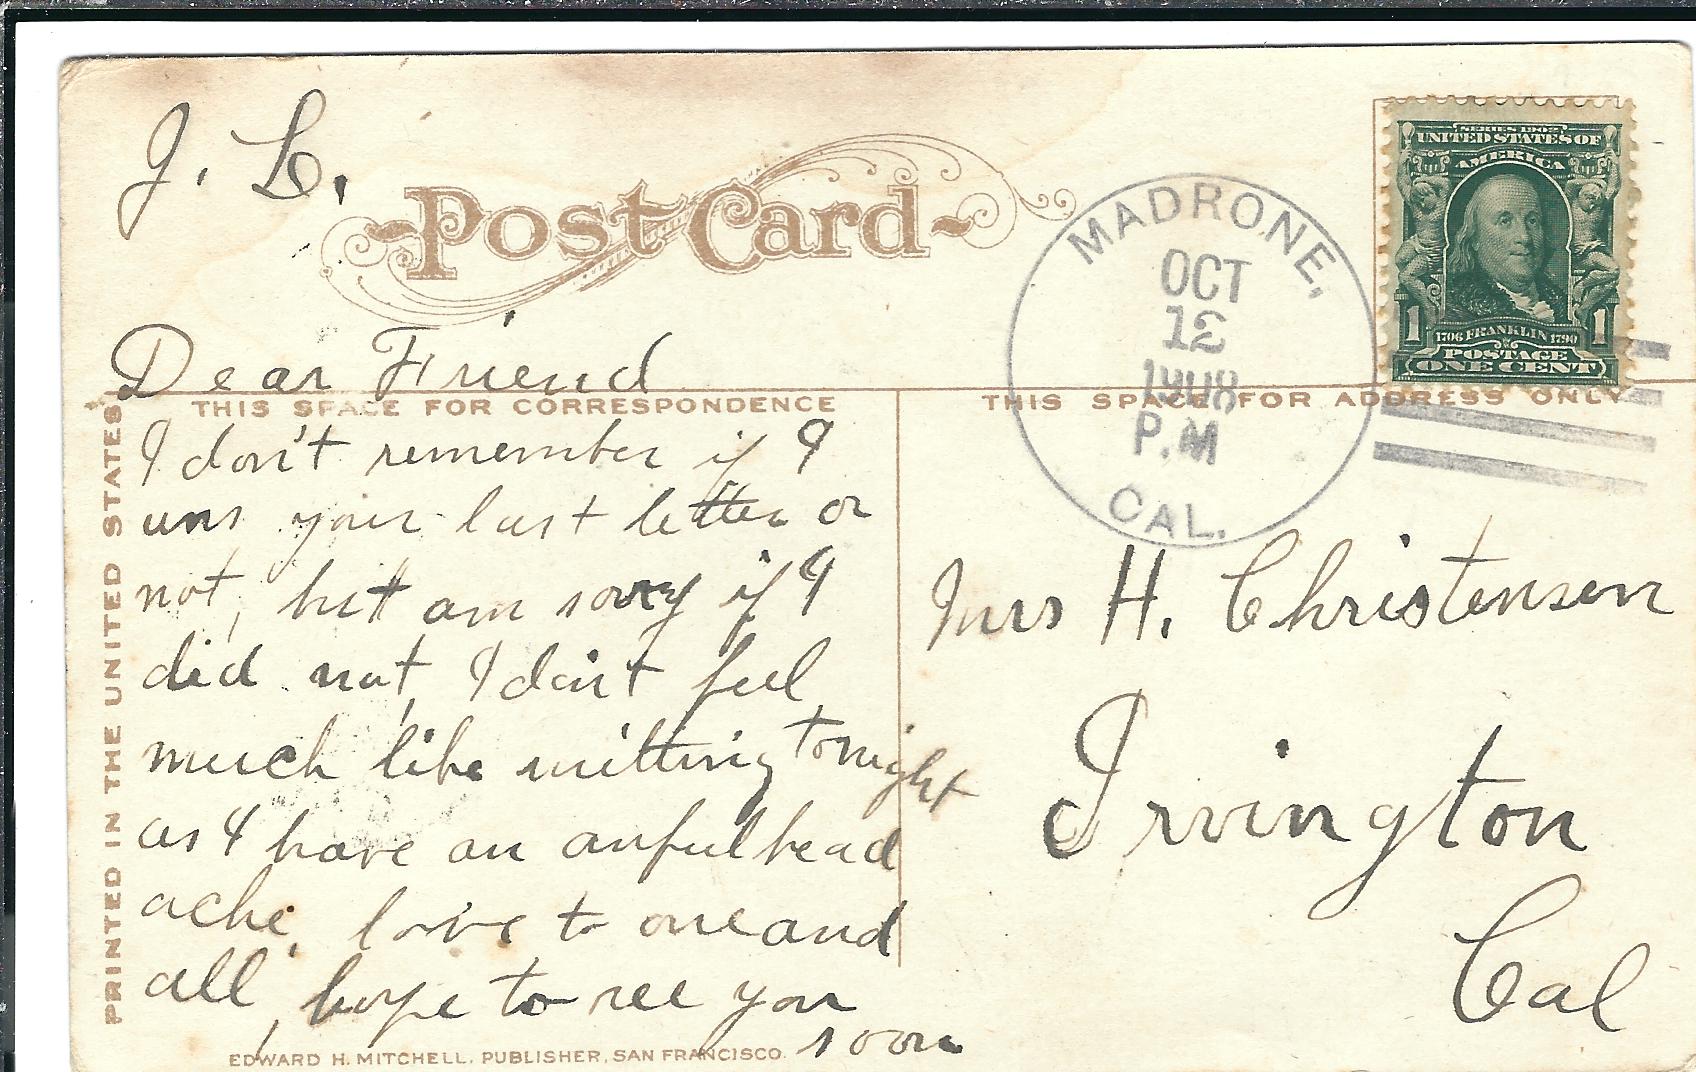 J. L.
Post Card
MADRONE,
OCT
12
1908
P.M
CAL.
SERIES 1902
UNITED STATES OF
AMERICA
1706 FRANKLIN 1790
1 1
POSTAGE
ONE CENT
Dear Friend
THIS SPACE FOR CORRESPONDENCE
THIS SPACE FOR ADDRESS ONLY
PRINTED IN THE UNITED STATES
I don't remember if I
ans your last letter or
not, but am sorry if I
did not, I don't feel
much like writting tonight
as I have an awful head
ache, love to one and
all, hope to see you
soon
Mrs H. Christensen
Irvington
Cal
EDWARD H. MITCHELL, PUBLISHER, SAN FRANCISCO.